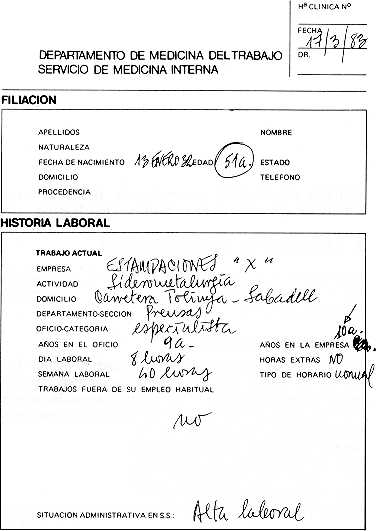 Hª CLINICA Nº
FECHA 17/3/83
DR.
DEPARTAMENTO DE MEDICINA DEL TRABAJO
SERVICIO DE MEDICINA INTERNA
FILIACION
APELLIDOS NOMBRE
NATURALEZA
FECHA DE NACIMIENTO 13 ENERO 32 EDAD 51a. ESTADO
DOMICILIO TELEFONO
PROCEDENCIA
HISTORIA LABORAL
TRABAJO ACTUAL
EMPRESA ESTAMPACIONES "X"
ACTIVIDAD Siderometalurgía
DOMICILIO Carretera - Sabadell
DEPARTAMENTO-SECCION Prensas
OFICIO-CATEGORIA especialista
10a.
AÑOS EN EL OFICIO 9a- AÑOS EN LA EMPRESA
DIA LABORAL 8 horas HORAS EXTRAS NO
SEMANA LABORAL 40 horas TIPO DE HORARIO normal
TRABAJOS FUERA DE SU EMPLEO HABITUAL
NO
SITUACION ADMINISTRATIVA EN S.S.: Alta laboral